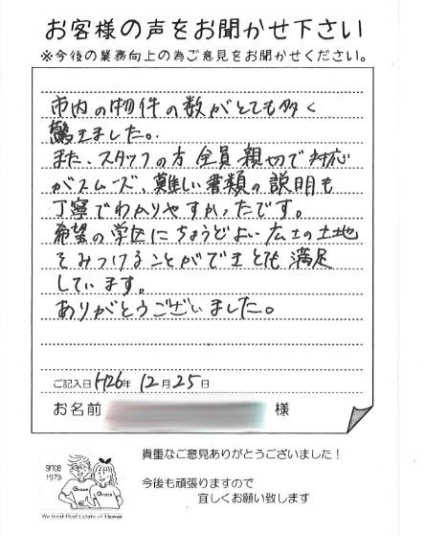 お客様の声をお聞かせ下さい
※今後の業務向上の為ご意見をお聞かせください。
市内の物件の数がとても多く
驚きました。
また、スタッフの方 全員 親切で対応
がスムーズ、難しい書類の説明も
丁寧でわかりやすかったです。
希望の学区にちょうどよい広さの土地
をみつけることができとても満足
しています。
ありがとうございました。
ご記入日 H26年 12月25日
お名前 様
貴重なご意見ありがとうございました!
今後も頑張りますので
宜しくお願い致します
since
1979